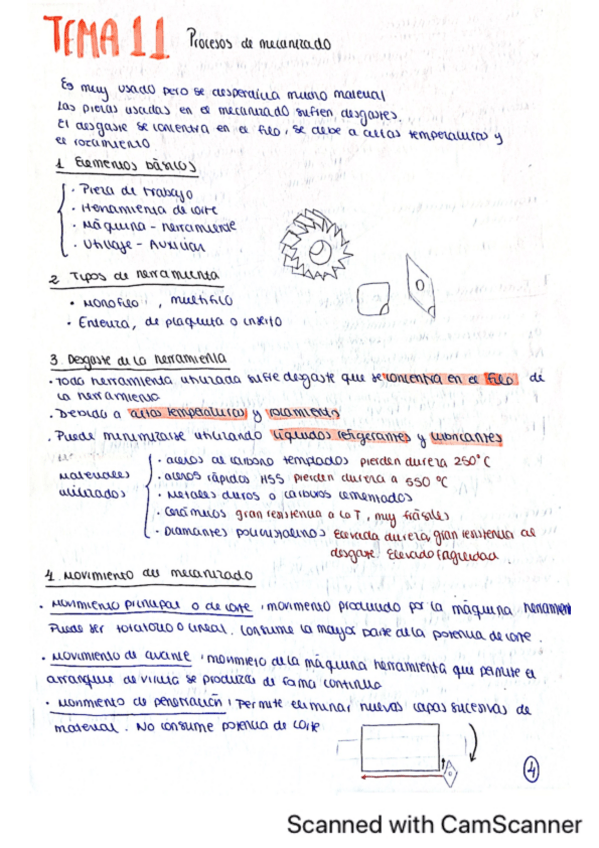 TEMA 11 Procesos de mecanizado
Es muy usado pero se desperdicia mucho material
Las piezas usadas en el mecanizado sufren desgastes.
El desgaste se concentra en el filo, se debe a altas temperaturas y
el rozamiento
1 Elementos básicos
· Pieza de trabajo
· Herramienta de corte
· Máquina - herramienta
· Utillaje - Auxiliar
2 Tipos de herramienta
• Monofilo, multifilo
• Enteriza, de plaquita o inserto
3 Desgaste de la herramienta
· Toda herramienta utilizada sufre desgaste que se concentra en el filo de
la herramienta
· Debido a altas temperaturas y rozamiento
· Puede minimizarse utilizando líquidos refrigerantes y lubricantes
materiales
utilizados
· aceros al carbono templados pierden dureza 250°C
· aceros rápidos HSS pierden dureza a 550 °C
· Metales duros o carburos cementados
· Cerámicos gran resistencia a la T, muy frágiles
· Diamantes policristalinos Elevada dureza, gran resistencia al
desgaste. Elevado fragilidad
4 Movimiento del mecanizado
• Movimiento principal o de corte, movimiento producido por la máquina herramienta
Puede ser rotatorio o lineal. Consume la mayor parte de la potencia de corte.
• Movimiento de avance, movimiento de la máquina herramienta que permite el
arranque de viruta se produzca de forma continua
• Movimiento de penetración, Permite eliminar nuevas capas sucesivas de
material. No consume potencia de corte
4
Scanned with CamScanner